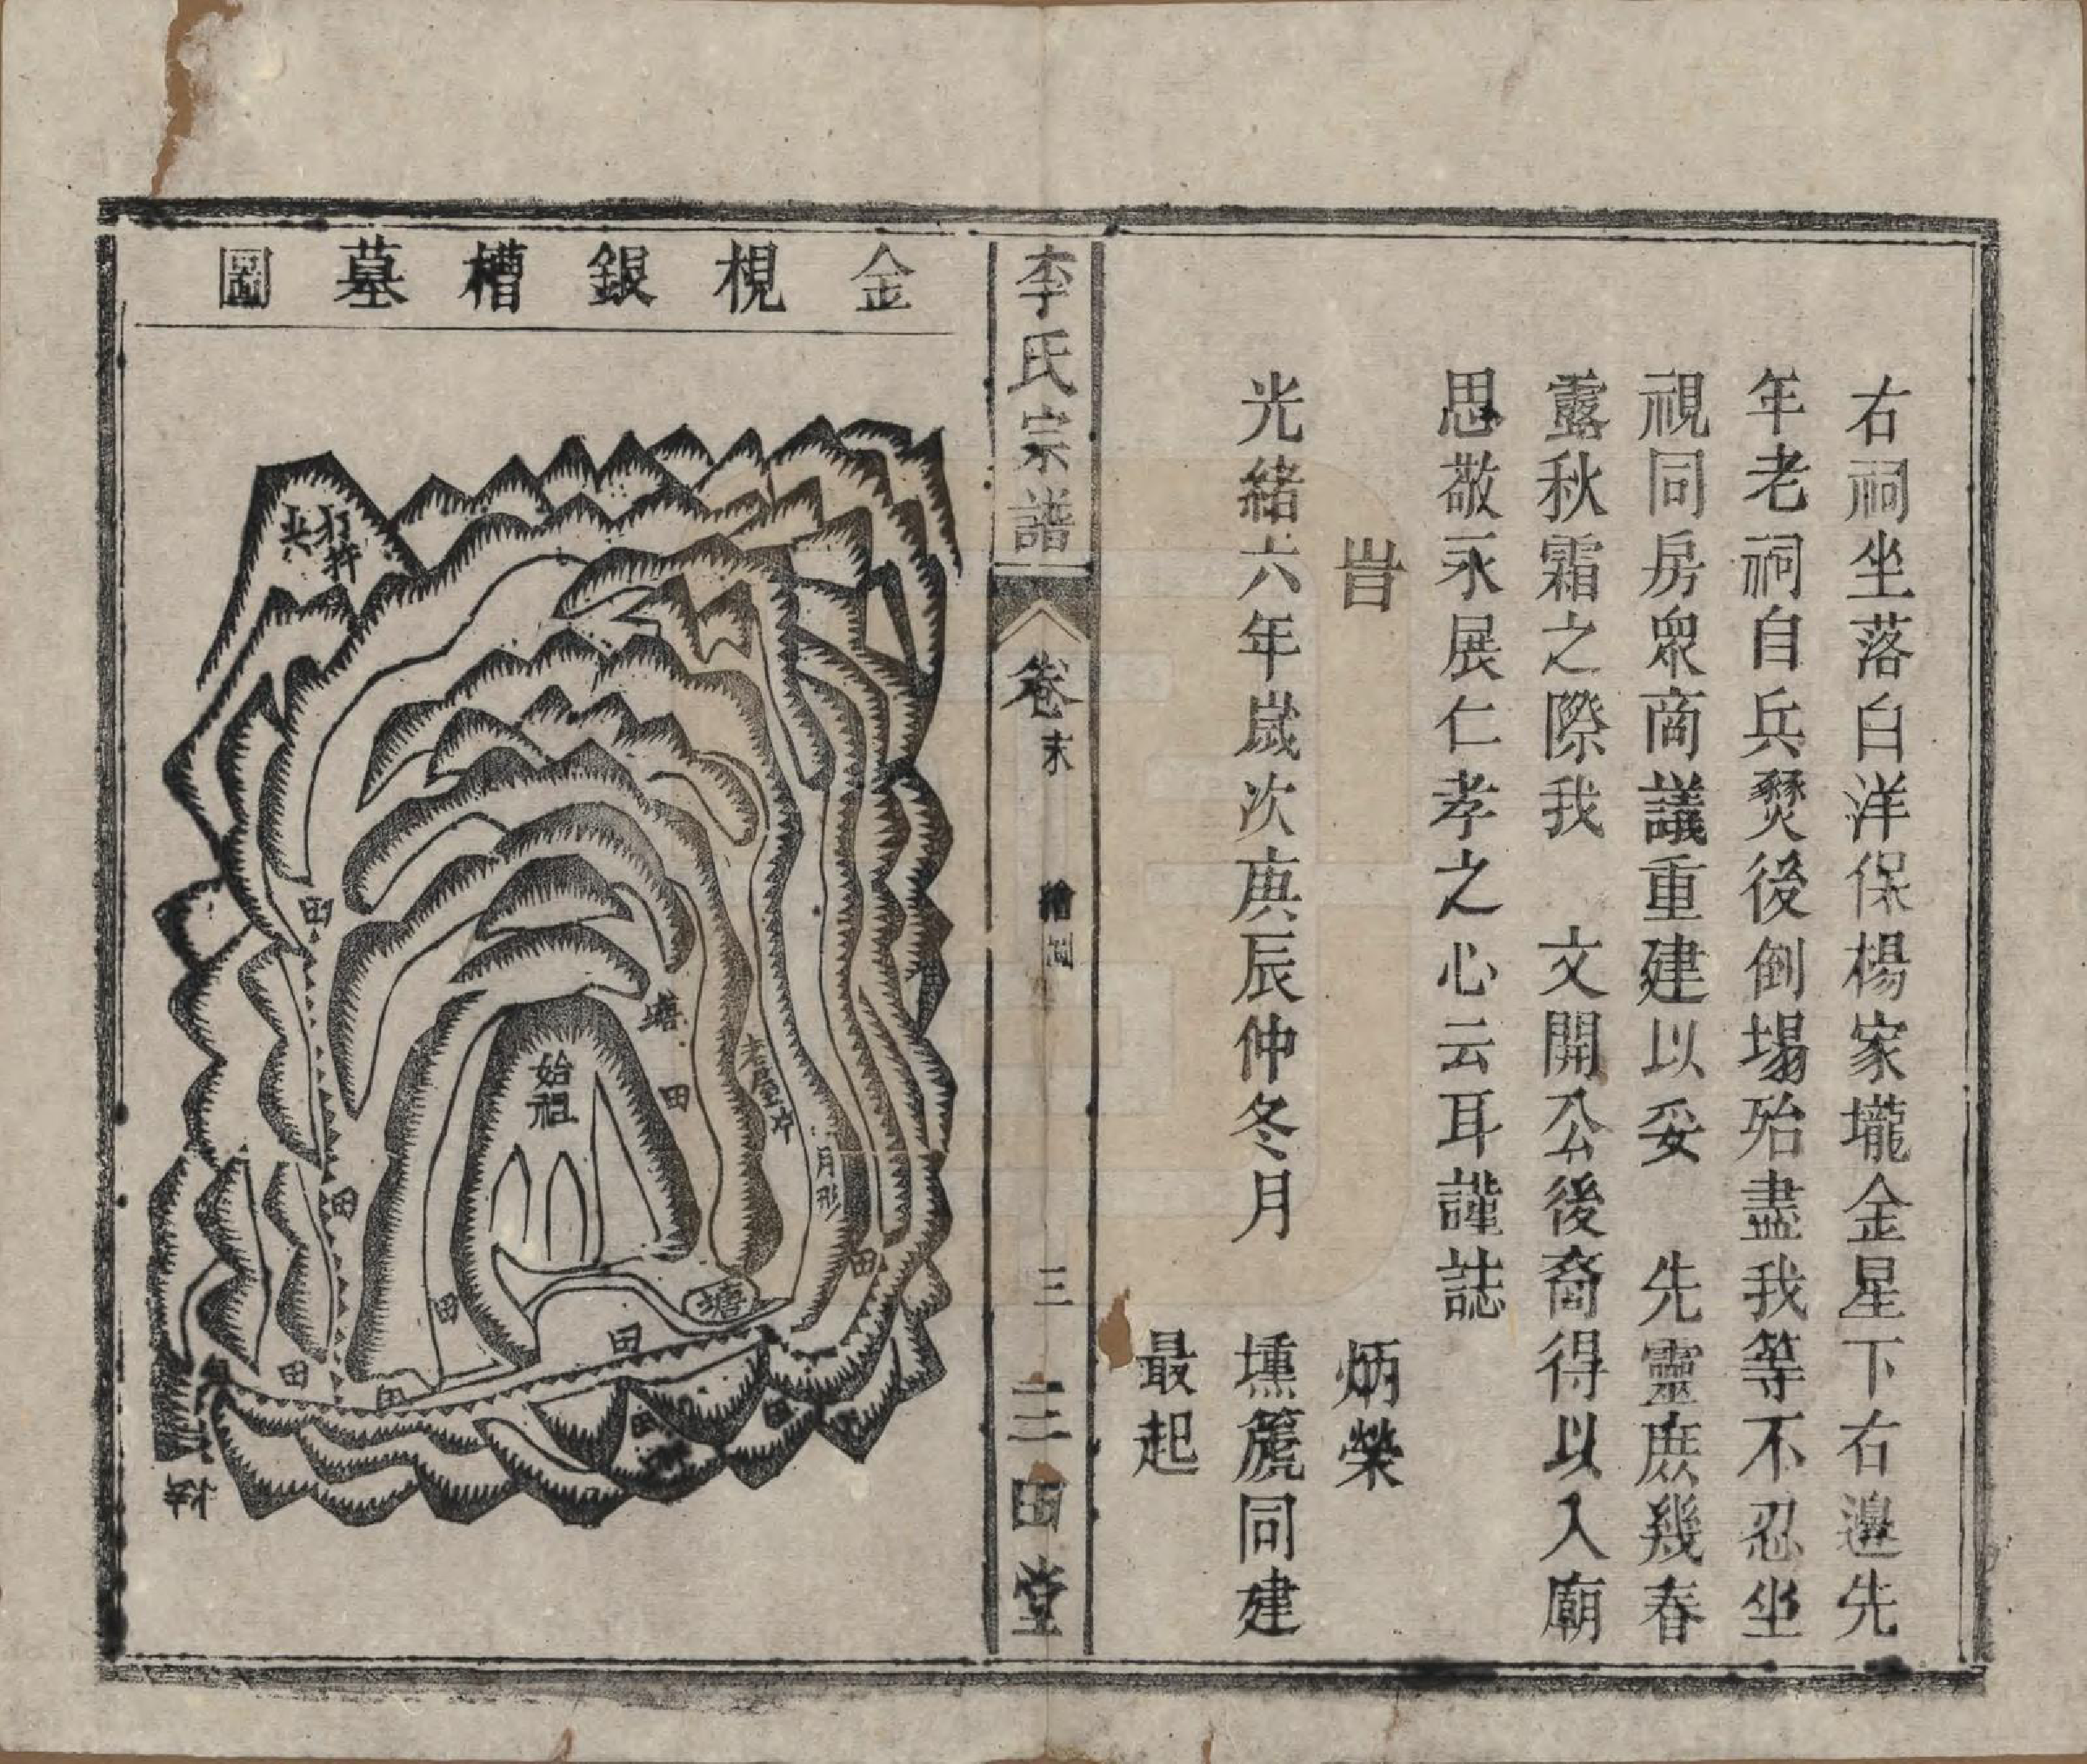 右祠坐落白洋保楊家壠金星下右邉先
年老祠自兵燹後倒塌殆盡我等不忍坐
視同房眾商議重建以妥　先靈庶幾春
露秋霜之際我　文開公後裔得以入廟
思敬永展仁孝之心云耳謹誌
旹
光緒六年歲次庚辰仲冬月
炳榮
壎篪同建
最起
李氏宗譜
卷末　繪圖　三
三田堂
金梘銀槽墓圖
始祖
塘
田
老屋冲
月形
田
塘
田
田
田
田
田
田
田
田